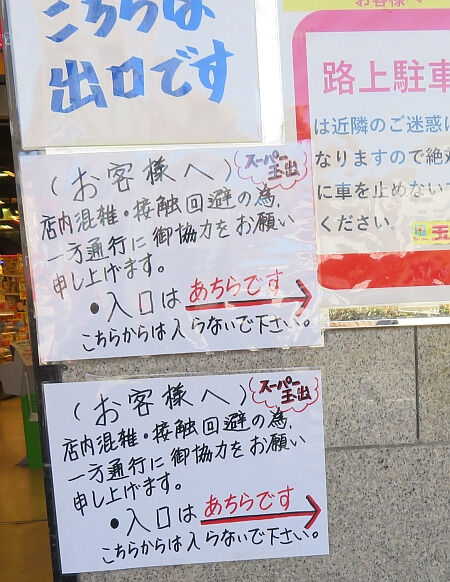 こちらは
出口です
お客様へ
路上駐車
は近隣のご迷惑に
なりますので絶対
に車を止めないで
ください。
玉
(お客様へ)
スーパー
玉出
店内混雑・接触回避の為、
一方通行に御協力をお願い
申し上げます。
●入口はあちらです
こちらからは入らないで下さい。
(お客様へ)
スーパー
玉出
店内混雑・接触回避の為、
一方通行に御協力をお願い
申し上げます。
●入口はあちらです
こちらからは入らないで下さい。